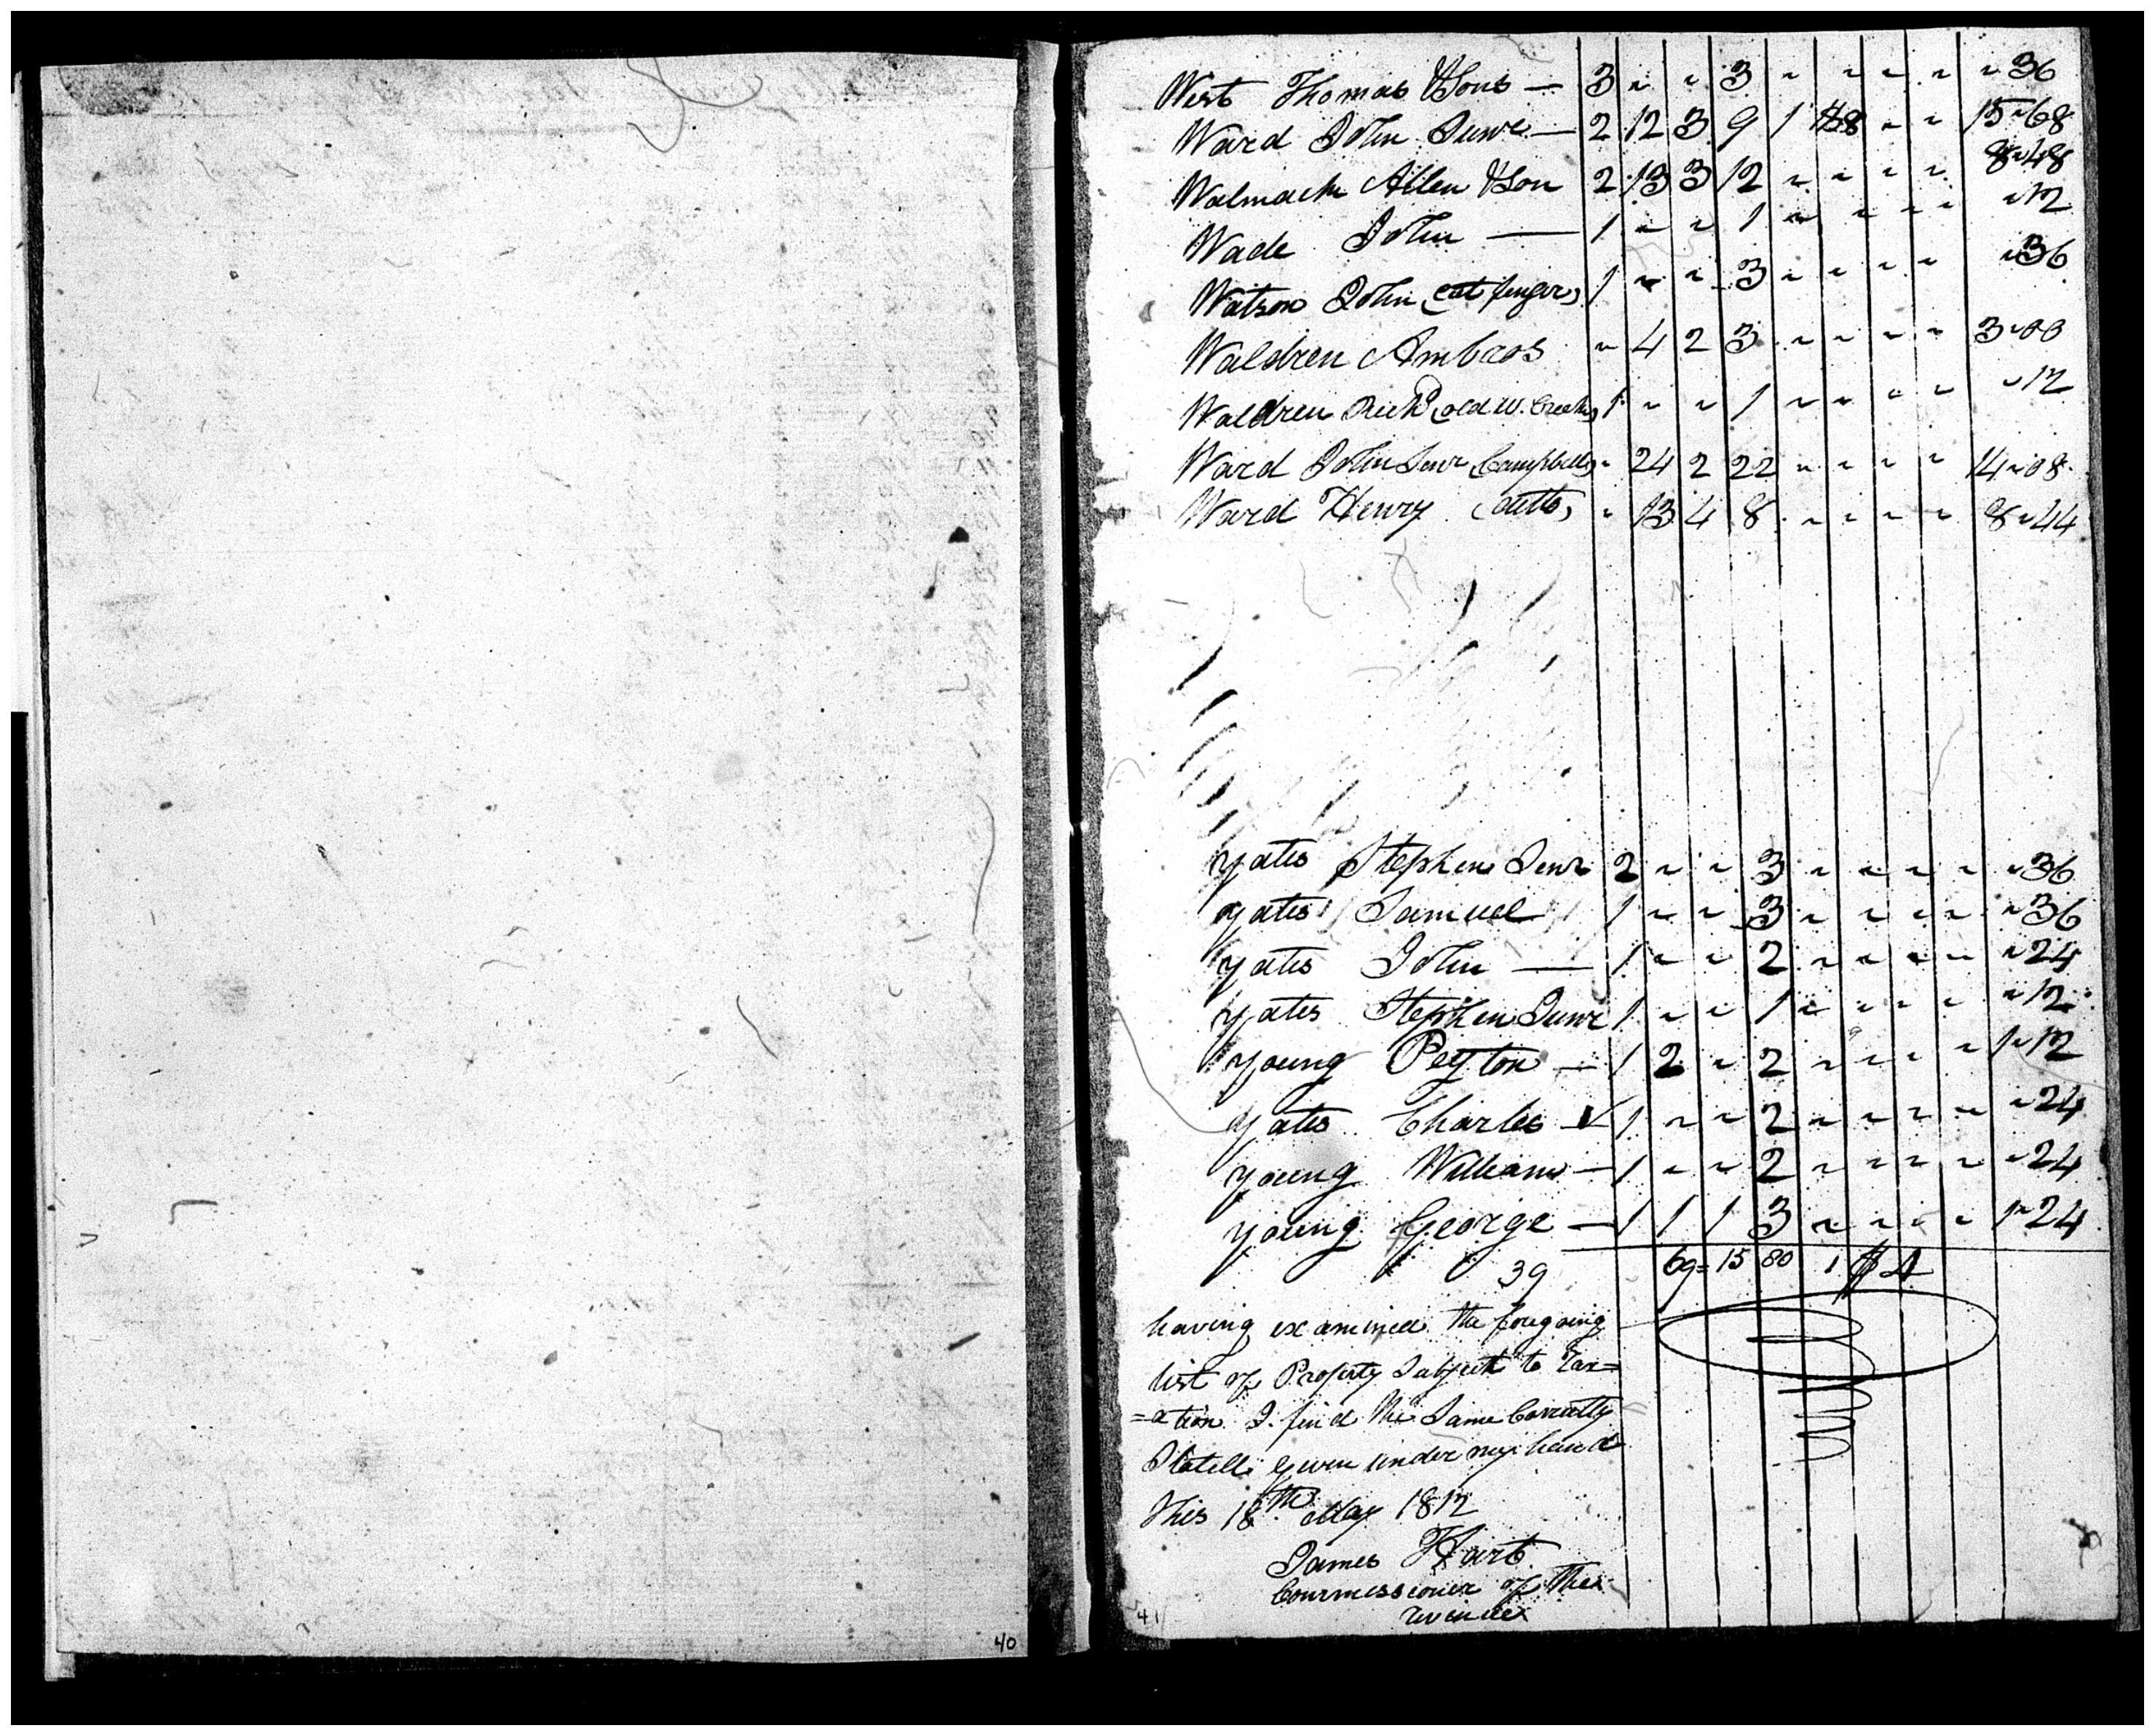 West Thomas & Sons — 3 " " 3 " " " " " 36
Ward John Junr — 2 12 3 9 1 $8 " " 15 " 68
Walmack Allen & Son 2 13 3 12 " " " " 8 " 48
Wade John — 1 " " 1 " " " " " 12
Watson John (cut finger) 1 " " 3 " " " " " 36
Waldren Ambros " 4 2 3 " " " " 3 " 00
Waldren Richd (old W. Creek) 1 " " 1 " " " " " 12
Ward John Senr (Campbell) " 24 2 22 " " " " 14 " 08
Ward Henry (ditto) " 13 4 8 " " " " 8 " 44
Yates Stephen Senr 2 " " 3 " " " " " 36
Yates Samuel 1 " " 3 " " " " " 36
Yates John — 1 " " 2 " " " " " 24
Yates Stephen Junr 1 " " 1 " " " " " 12
Young Peyton — 1 2 " 2 " " " " 1 " 12
Yates Charles — 1 " " 2 " " " " " 24
Young William — 1 " " 2 " " " " " 24
Young George — 1 1 1 3 " " " " 1 " 24
39 69 = 15 80 1 $
having examined the foregoing
list of Property Subject to Tax=
=ation I find the Same Correctly
Stated given under my hand
this 18th May 1812
James Hart
Commissioner of the
revenue
40
41